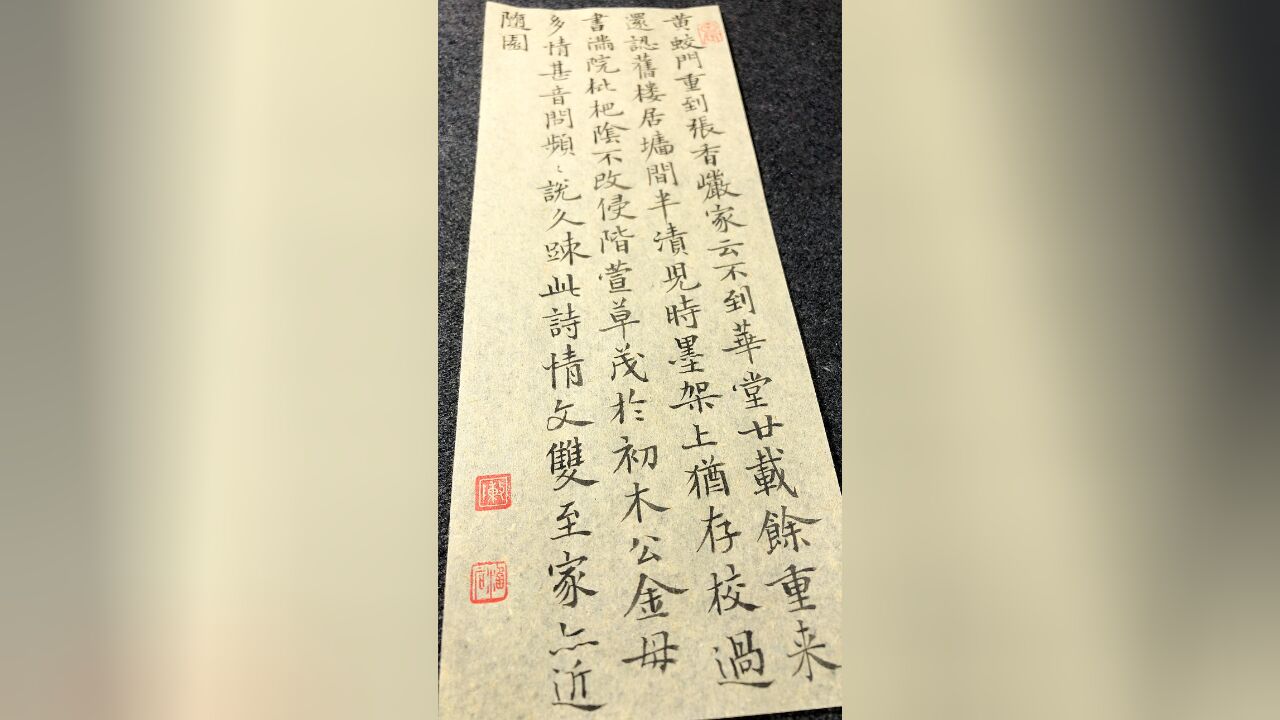 黄蛟門重到張香巗家云不到華堂廿載餘重来
還認舊楼居墻間半漬児時墨架上猶存校過
書滿院枇杷陰不改侵階萱草茂於初木公金母
多情甚音問頻〻說久踈此詩情文雙至家亦近
隨園